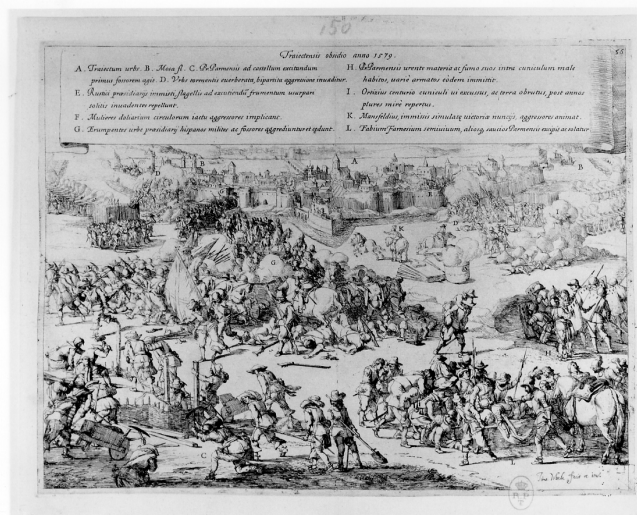 150
56
Traiectensis obsidio anno 1579.
A. Traiectum urbs. B. Mosa fl. C. Pr. Parmensis ad castellum excitandum
primus fossorem agit. D. Vrbs tormentis everberata, bipartita aggressione invaditur.
E. Rustici præsidiarijs immisti, flagellis ad excutiendū frumentum usurpari
solitis invadentes repellunt.
F. Mulieres doliarium circulorum iactu aggressores implicant.
G. Erumpentes urbe præsidiarij hispanos milites ac fossores aggrediuntur et cædunt.
H. Pr. Parmensis urente materia ac fumo suos intra cuniculum male
habitos, varie armatos eodem immittit.
I. Ortizius centurio cuniculi vi excussus, ac terra abrutus, post annos
plures mire repertus.
K. Mansfeldius, immissis simulatæ victoriæ nuncijs, aggressores animat.
L. Fabium Farnesium semivivum, aliosq. saucios Parmensis excipit ac solatur
A
B
B
D
D
K
G
I
H
C
L